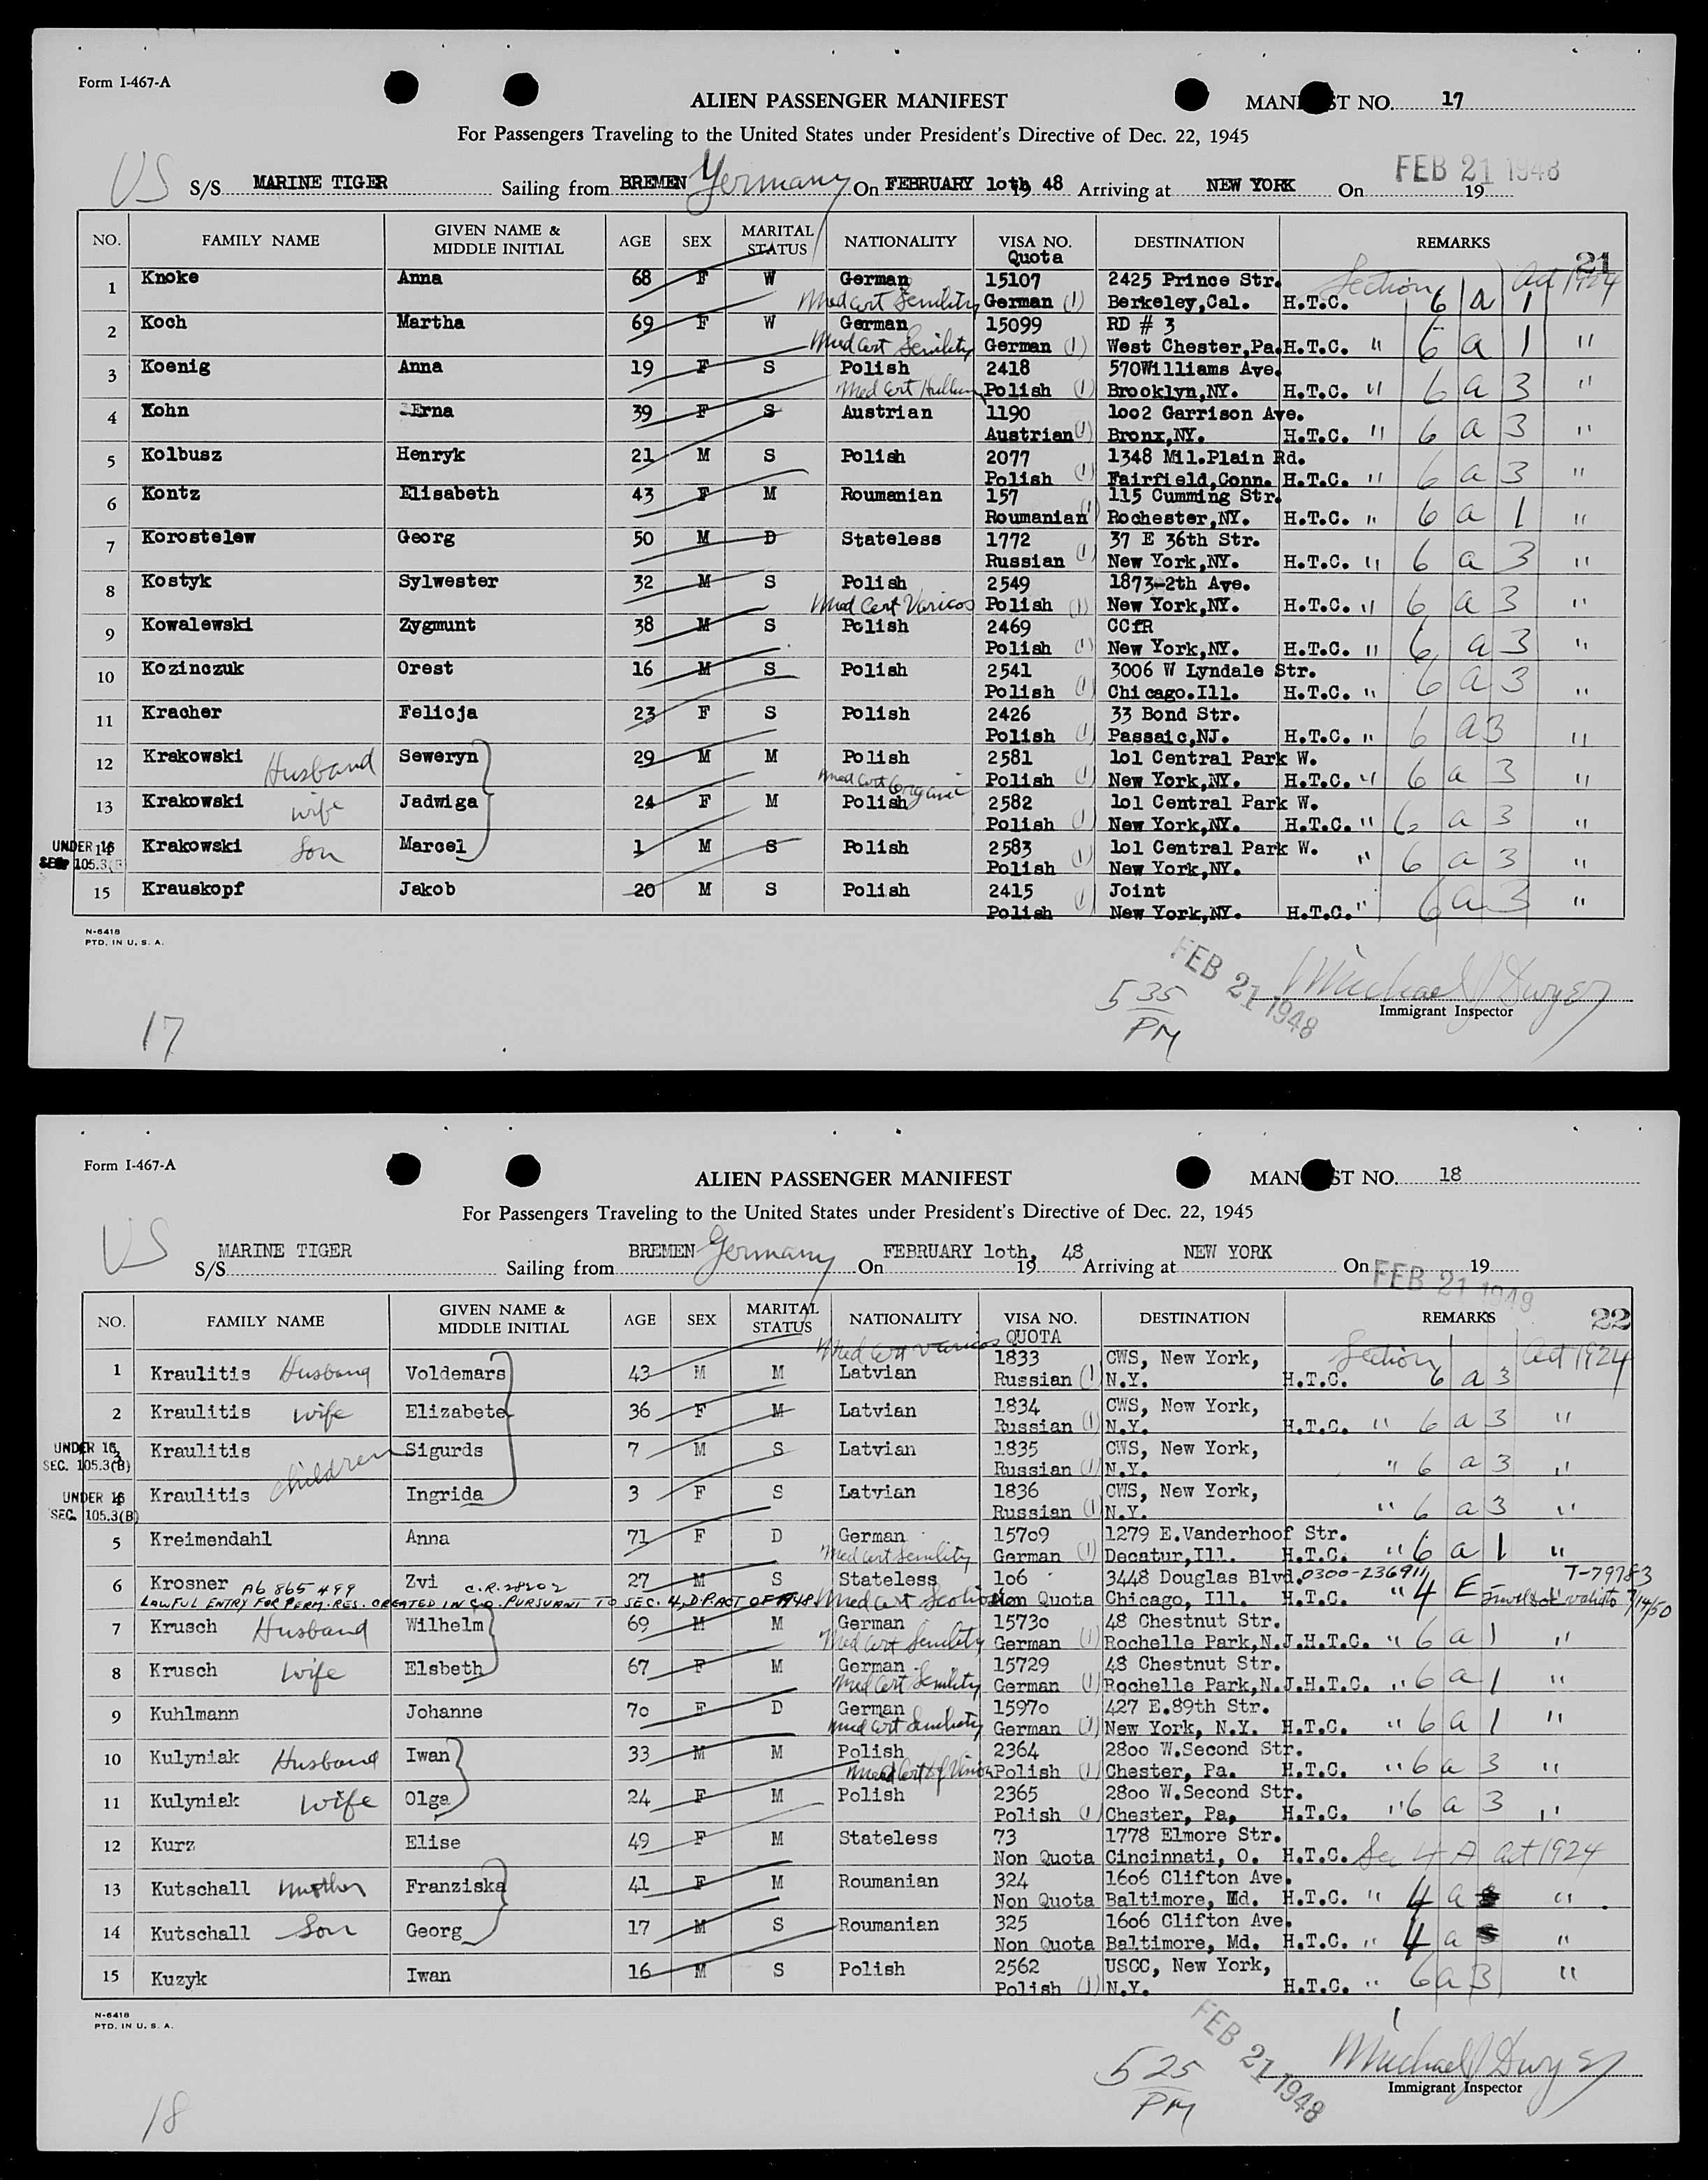 Form I-467-A
ALIEN PASSENGER MANIFEST
MAN ST NO. 17
For Passengers Traveling to the United States under President's Directive of Dec. 22, 1945
US S/S MARINE TIGER Sailing from BREMEN Germany On FEBRUARY 1oth 19 48 Arriving at NEW YORK On FEB 21 1948 19
NO. FAMILY NAME GIVEN NAME & MIDDLE INITIAL AGE SEX MARITAL STATUS NATIONALITY VISA NO. Quota DESTINATION REMARKS 21
1 Knoke Anna 68 F W German 15107 2425 Prince Str. Section Act 1924
Med Cert Senility German (1) Berkeley,Cal. H.T.C. 6 a 1
2 Koch Martha 69 F W German 15099 RD # 3
Med Cert Senility German (1) West Chester,Pa.H.T.C. " 6 a 1 "
3 Koenig Anna 19 F S Polish 2418 570Williams Ave.
Med Cert Polish (1) Brooklyn,NY. H.T.C. " 6 a 3 "
4 Kohn Erna 39 F S Austrian 1190 1oo2 Garrison Ave.
Austrian (1) Bronx,NY. H.T.C. " 6 a 3 "
5 Kolbusz Henryk 21 M S Polish 2077 1348 Mil.Plain Rd.
Polish (1) Fairfield,Conn. H.T.C. " 6 a 3 "
6 Kontz Elisabeth 43 F M Roumanian 157 115 Cumming Str.
Roumanian (1) Rochester,NY. H.T.C. " 6 a 1 "
7 Korostelew Georg 50 M D Stateless 1772 37 E 36th Str.
Russian (1) New York,NY. H.T.C. " 6 a 3 "
8 Kostyk Sylwester 32 M S Polish 2549 1873-2th Ave.
Med Cert Varicos Polish (1) New York,NY. H.T.C. " 6 a 3 "
9 Kowalewski Zygmunt 38 M S Polish 2469 CCfR
Polish (1) New York,NY. H.T.C. " 6 a 3 "
10 Kozinczuk Orest 16 M S Polish 2541 3006 W Lyndale Str.
Polish (1) Chicago.Ill. H.T.C. " 6 a 3 "
11 Kracher Felicja 23 F S Polish 2426 33 Bond Str.
Polish (1) Passaic,NJ. H.T.C. " 6 a 3 "
12 Krakowski Husband Seweryn 29 M M Polish 2581 1o1 Central Park W.
Med Cert Organic Polish (1) New York,NY. H.T.C. " 6 a 3 "
13 Krakowski wife Jadwiga 24 F M Polish 2582 1o1 Central Park W.
Polish (1) New York,NY. H.T.C. " 6 a 3 "
UNDER 16 14 Krakowski Son Marcel 1 M S Polish 2583 1o1 Central Park W.
SEC. 105.3(B) Polish (1) New York,NY. " 6 a 3 "
15 Krauskopf Jakob 20 M S Polish 2415 Joint
Polish (1) New York,NY. H.T.C. " 6 a 3 "
N-6418
PTD. IN U. S. A.
FEB 21 1948
5 35 PM
Michael J Dwyer
Immigrant Inspector
17
Form I-467-A
ALIEN PASSENGER MANIFEST
MAN ST NO. 18
For Passengers Traveling to the United States under President's Directive of Dec. 22, 1945
US S/S MARINE TIGER Sailing from BREMEN Germany On FEBRUARY 1oth, 19 48 Arriving at NEW YORK On FEB 21 1948 19
NO. FAMILY NAME GIVEN NAME & MIDDLE INITIAL AGE SEX MARITAL STATUS NATIONALITY VISA NO. QUOTA DESTINATION REMARKS 22
Med Cert Varicos
1 Kraulitis Husband Voldemars 43 M M Latvian 1833 CWS, New York, Section Act 1924
Russian (1) N.Y. H.T.C. 6 a 3
2 Kraulitis wife Elizabete 36 F M Latvian 1834 CWS, New York,
Russian (1) N.Y. H.T.C. " 6 a 3 "
UNDER 16 3 Kraulitis children Sigurds 7 M S Latvian 1835 CWS, New York,
SEC. 105.3(B) Russian (1) N.Y. " 6 a 3 "
UNDER 16 4 Kraulitis Ingrida 3 F S Latvian 1836 CWS, New York,
SEC. 105.3(B) Russian (1) N.Y. " 6 a 3 "
5 Kreimendahl Anna 71 F D German 157o9 1279 E.Vanderhoof Str.
Med Cert Senility German (1) Decatur,Ill. H.T.C. " 6 a 1 "
6 Krosner A6 865 499 Zvi C.R. 28202 27 M S Stateless 1o6 3448 Douglas Blvd. 0300-236911 T-79783
LAWFUL ENTRY FOR PERM. RES. CREATED IN C.O. PURSUANT TO SEC. 4, D.P. ACT OF 1948 Med Cert Non Quota Chicago, Ill. H.T.C. " 4 E valid to 7/14/50
7 Krusch Husband Wilhelm 69 M M German 1573o 48 Chestnut Str.
Med Cert Senility German (1) Rochelle Park,N.J.H.T.C. " 6 a 1 "
8 Krusch wife Elsbeth 67 F M German 15729 48 Chestnut Str.
Med Cert Senility German (1) Rochelle Park,N.J.H.T.C. " 6 a 1 "
9 Kuhlmann Johanne 7o F D German 1597o 427 E.89th Str.
Med Cert Senility German (1) New York, N.Y. H.T.C. " 6 a 1 "
10 Kulyniak Husband Iwan 33 M M Polish 2364 28oo W.Second Str.
Med Cert of Vision Polish (1) Chester, Pa. H.T.C. " 6 a 3 "
11 Kulyniak wife Olga 24 F M Polish 2365 28oo W.Second Str.
Polish (1) Chester, Pa, H.T.C. " 6 a 3 "
12 Kurz Elise 49 F M Stateless 73 1778 Elmore Str.
Non Quota Cincinnati, O. H.T.C. Sec 4 A Act 1924
13 Kutschall mother Franziska 41 F M Roumanian 324 16o6 Clifton Ave.
Non Quota Baltimore, Md. H.T.C. " 4 a "
14 Kutschall Son Georg 17 M S Roumanian 325 16o6 Clifton Ave.
Non Quota Baltimore, Md. H.T.C. " 4 a "
15 Kuzyk Iwan 16 M S Polish 2562 USCC, New York,
Polish (1) N.Y. H.T.C. " 6 a 3 "
N-6418
PTD. IN U. S. A.
FEB 21 1948
5 25 PM
Michael J Dwyer
Immigrant Inspector
18